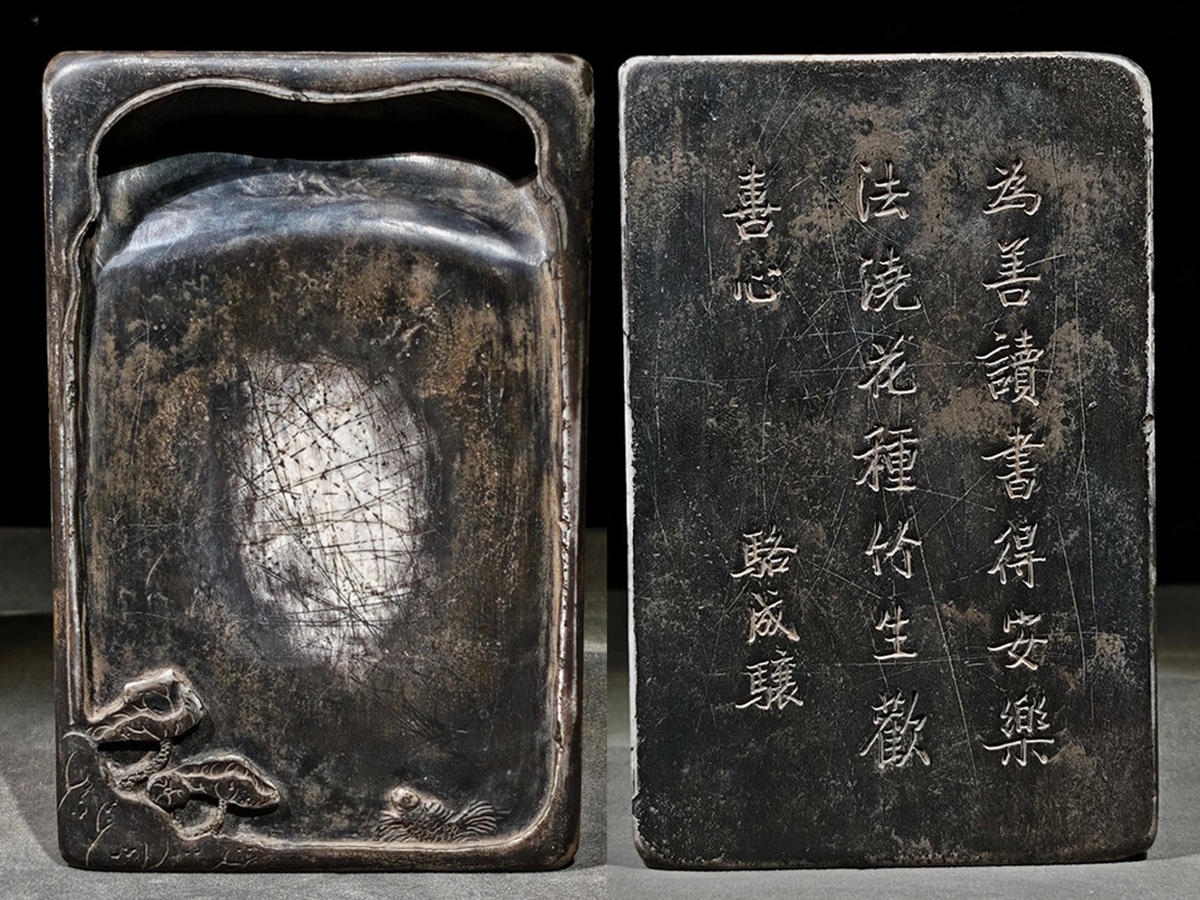 為善讀書得安樂
法澆花種竹生歡
善心 駱成驤